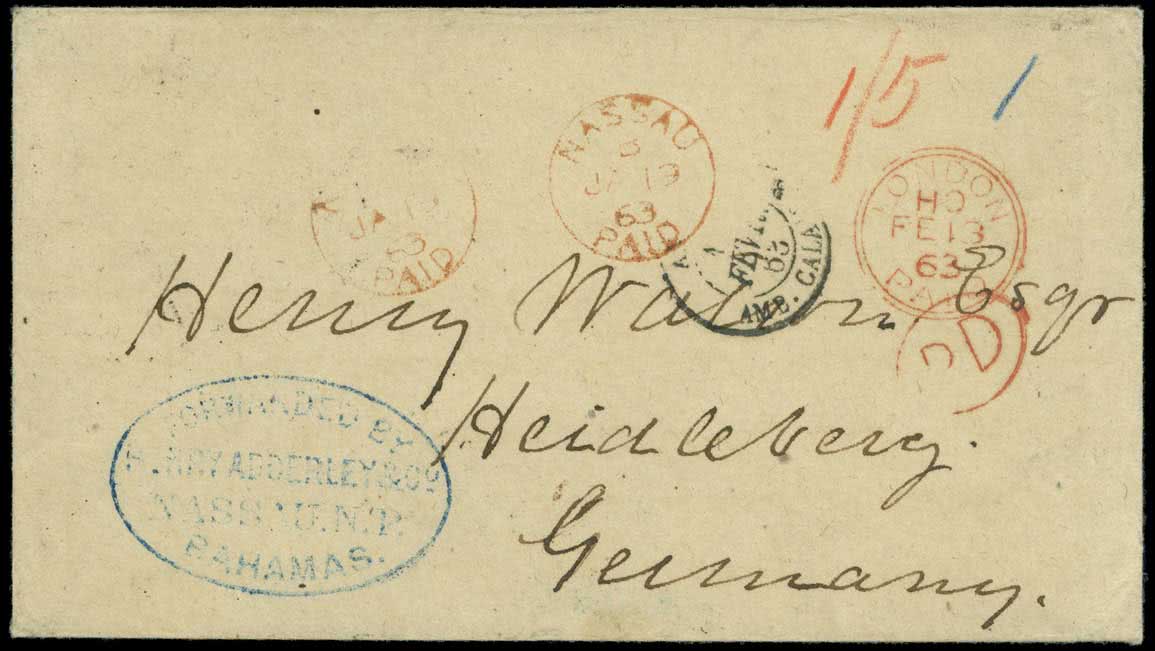 1/5 1
NASSAU
JA 19
63
PAID
JA 19
63
PAID
FEVR
63
AMB. CALA
LONDON
FE 13
63
PAID
PD
Henry Esqr
Heidleberg.
Germany.
FORWARDED BY
HENRY ADDERLEY & CO
NASSAU. N.P.
BAHAMAS.